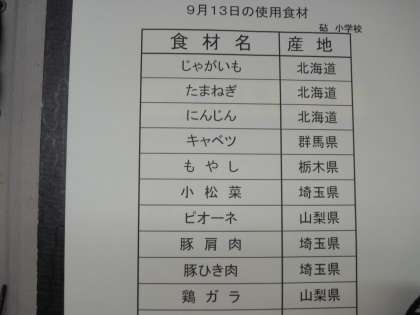 9月13日の使用食材
砧 小学校
食材名 産地
じゃがいも 北海道
たまねぎ 北海道
にんじん 北海道
キャベツ 群馬県
もやし 栃木県
小松菜 埼玉県
ピオーネ 山梨県
豚肩肉 埼玉県
豚ひき肉 埼玉県
鶏ガラ 山梨県